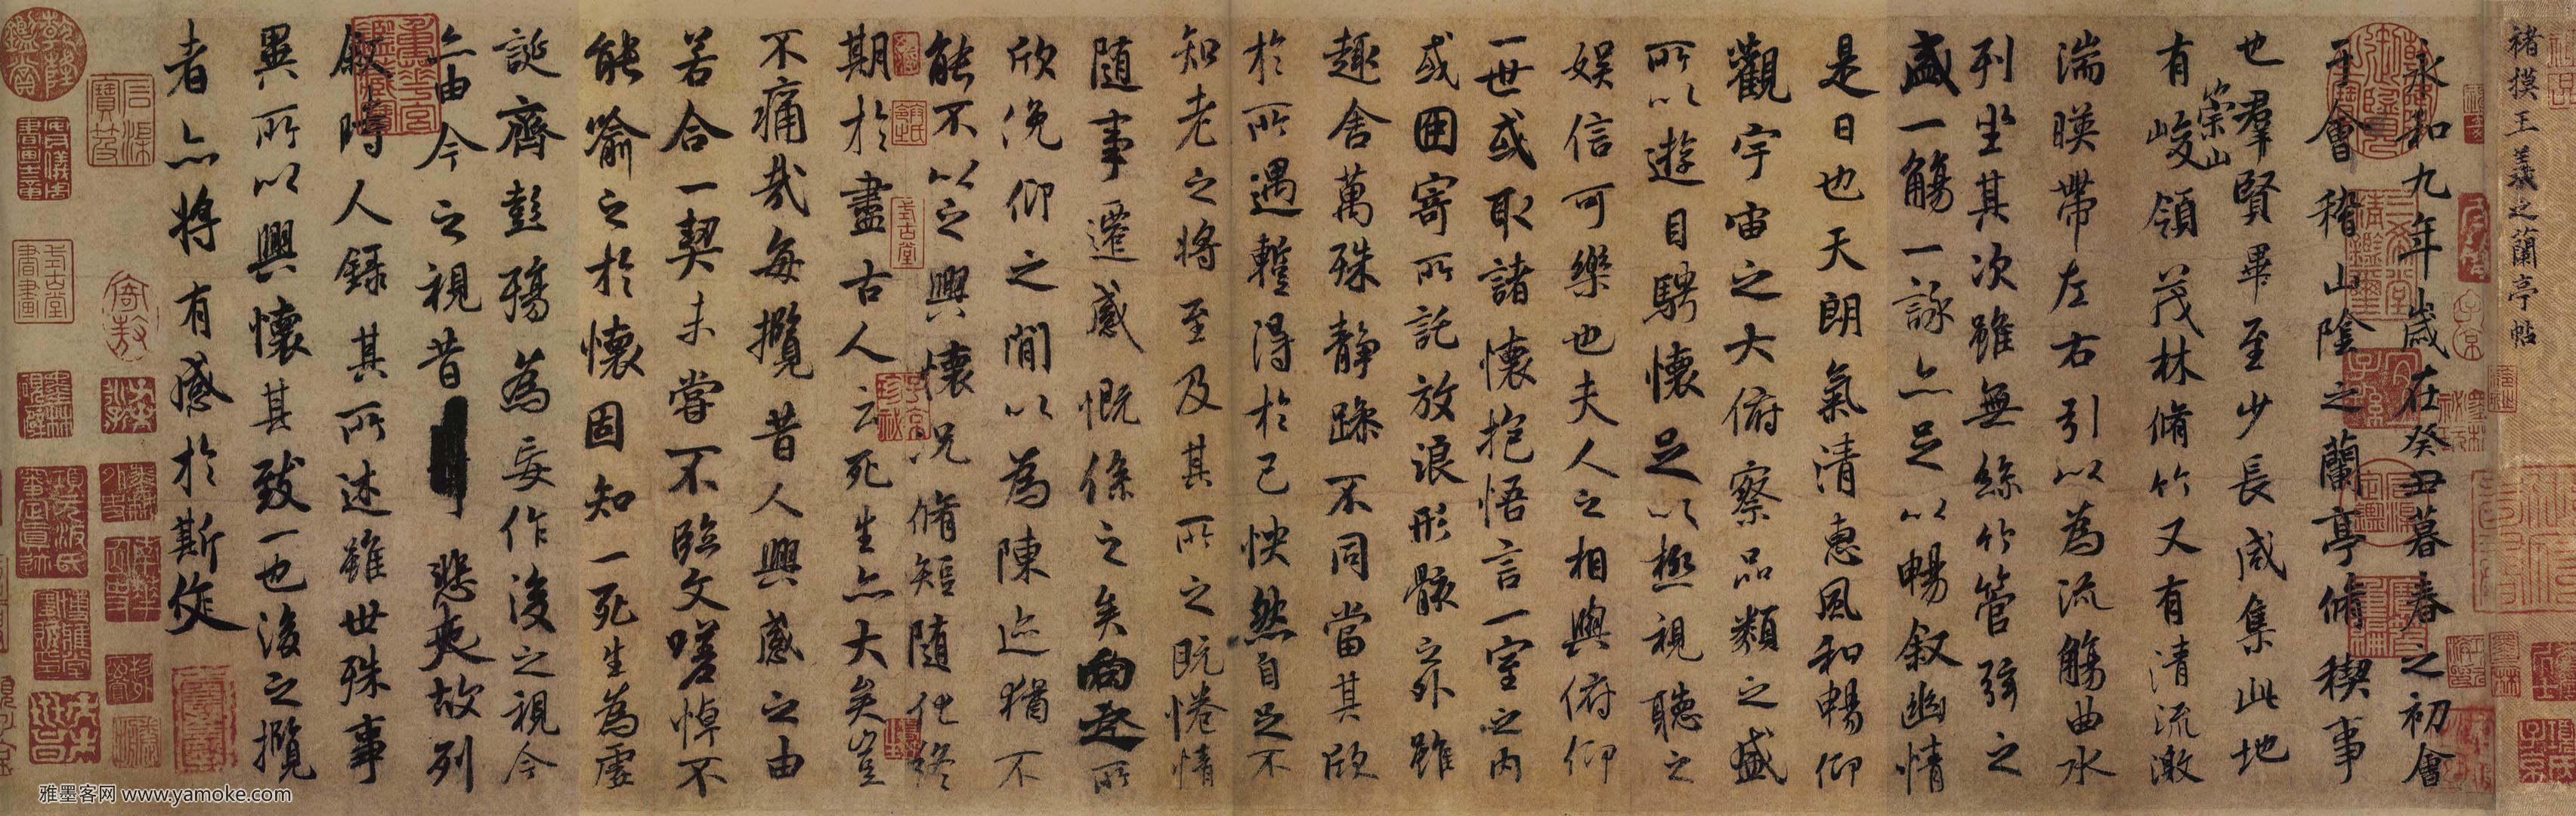 褚摸王羲之蘭亭帖
永和九年歲在癸丑暮春之初會
于會稽山陰之蘭亭脩稧事
也羣賢畢至少長咸集此地
有崇山峻領茂林脩竹又有清流激
湍暎帶左右引以為流觴曲水
列坐其次雖無絲竹管弦之
盛一觴一詠亦足以暢敘幽情
是日也天朗氣清惠風和暢仰
觀宇宙之大俯察品類之盛
所以遊目騁懷足以極視聽之
娛信可樂也夫人之相與俯仰
一世或取諸懷抱悟言一室之內
或因寄所託放浪形骸之外雖
趣舍萬殊靜躁不同當其欣
於所遇蹔得於己怏然自足不
知老之將至及其所之既惓情
隨事遷感慨係之矣向之所
欣俛仰之閒以為陳迹猶不
能不以之興懷況脩短隨化終
期於盡古人云死生亦大矣豈
不痛哉每攬昔人興感之由
若合一契未嘗不臨文嗟悼不
能喻之於懷固知一死生為虛
誕齊彭殤為妄作後之視今
亦由今之視昔悲夫故列
敘時人錄其所述雖世殊事
異所以興懷其致一也後之攬
者亦將有感於斯文
三希堂精鑑璽
宜子孫
重華宮鑑藏寶
式古堂
石渠寶笈
乾隆鑑賞
式古堂書畫
雅墨客网 www.yamoke.com